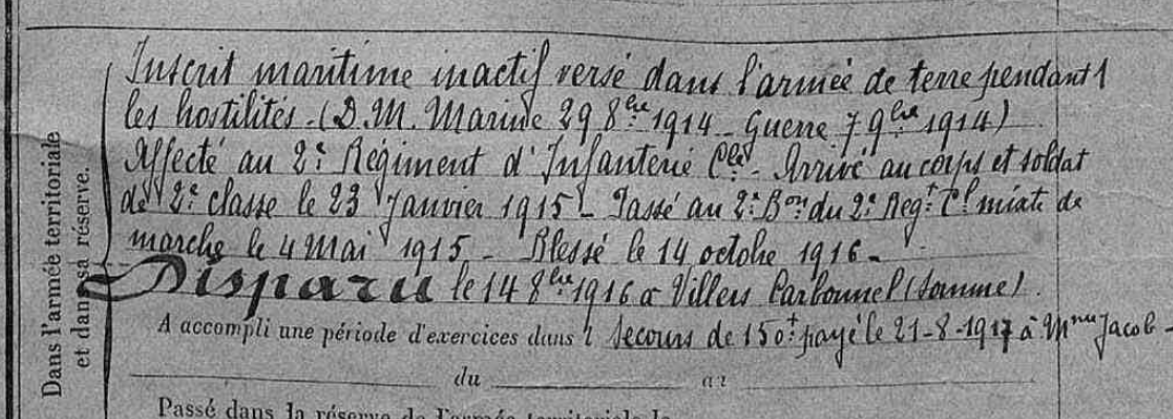 Inscrit maritime inactif versé dans l'armée de terre pendant
les hostilités. (D. M. Marine 29 8bre 1914 - Guerre 7 9bre 1914)
Affecté au 2e Régiment d'Infanterie Cle - Arrivé au corps et soldat
de 2e classe le 23 Janvier 1915 - Passé au 2e Bon du 2e Regt Cl mixte de
marche le 4 Mai 1915 - Blessé le 14 octobre 1916 -
Disparu le 14 8bre 1916 à Villers Carbonnel (Somme).
A accompli une période d'exercices dans l Secours de 150f payé le 21-8-1917 à Mme Jacob
du au
Passé dans la réserve de l'armée territoriale le
Dans l'armée territoriale
et dans sa réserve.